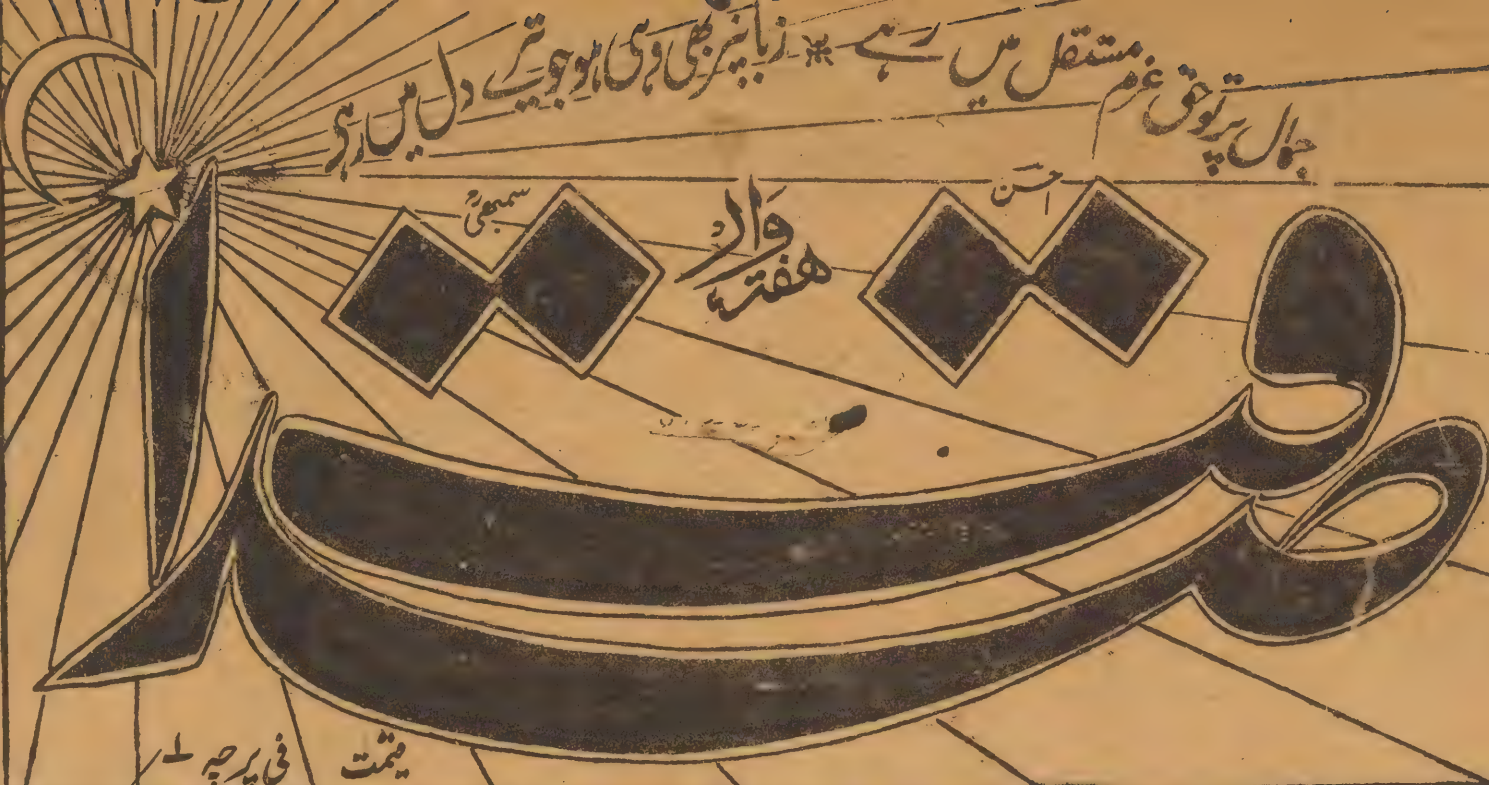 جمال پرتو حق عزم مستقل میں رہے * زباں پر بھی وہی ہو جو تیرے دل میں رہی
احسن
هفته وار
صداقت
قیمت فی پرچہ